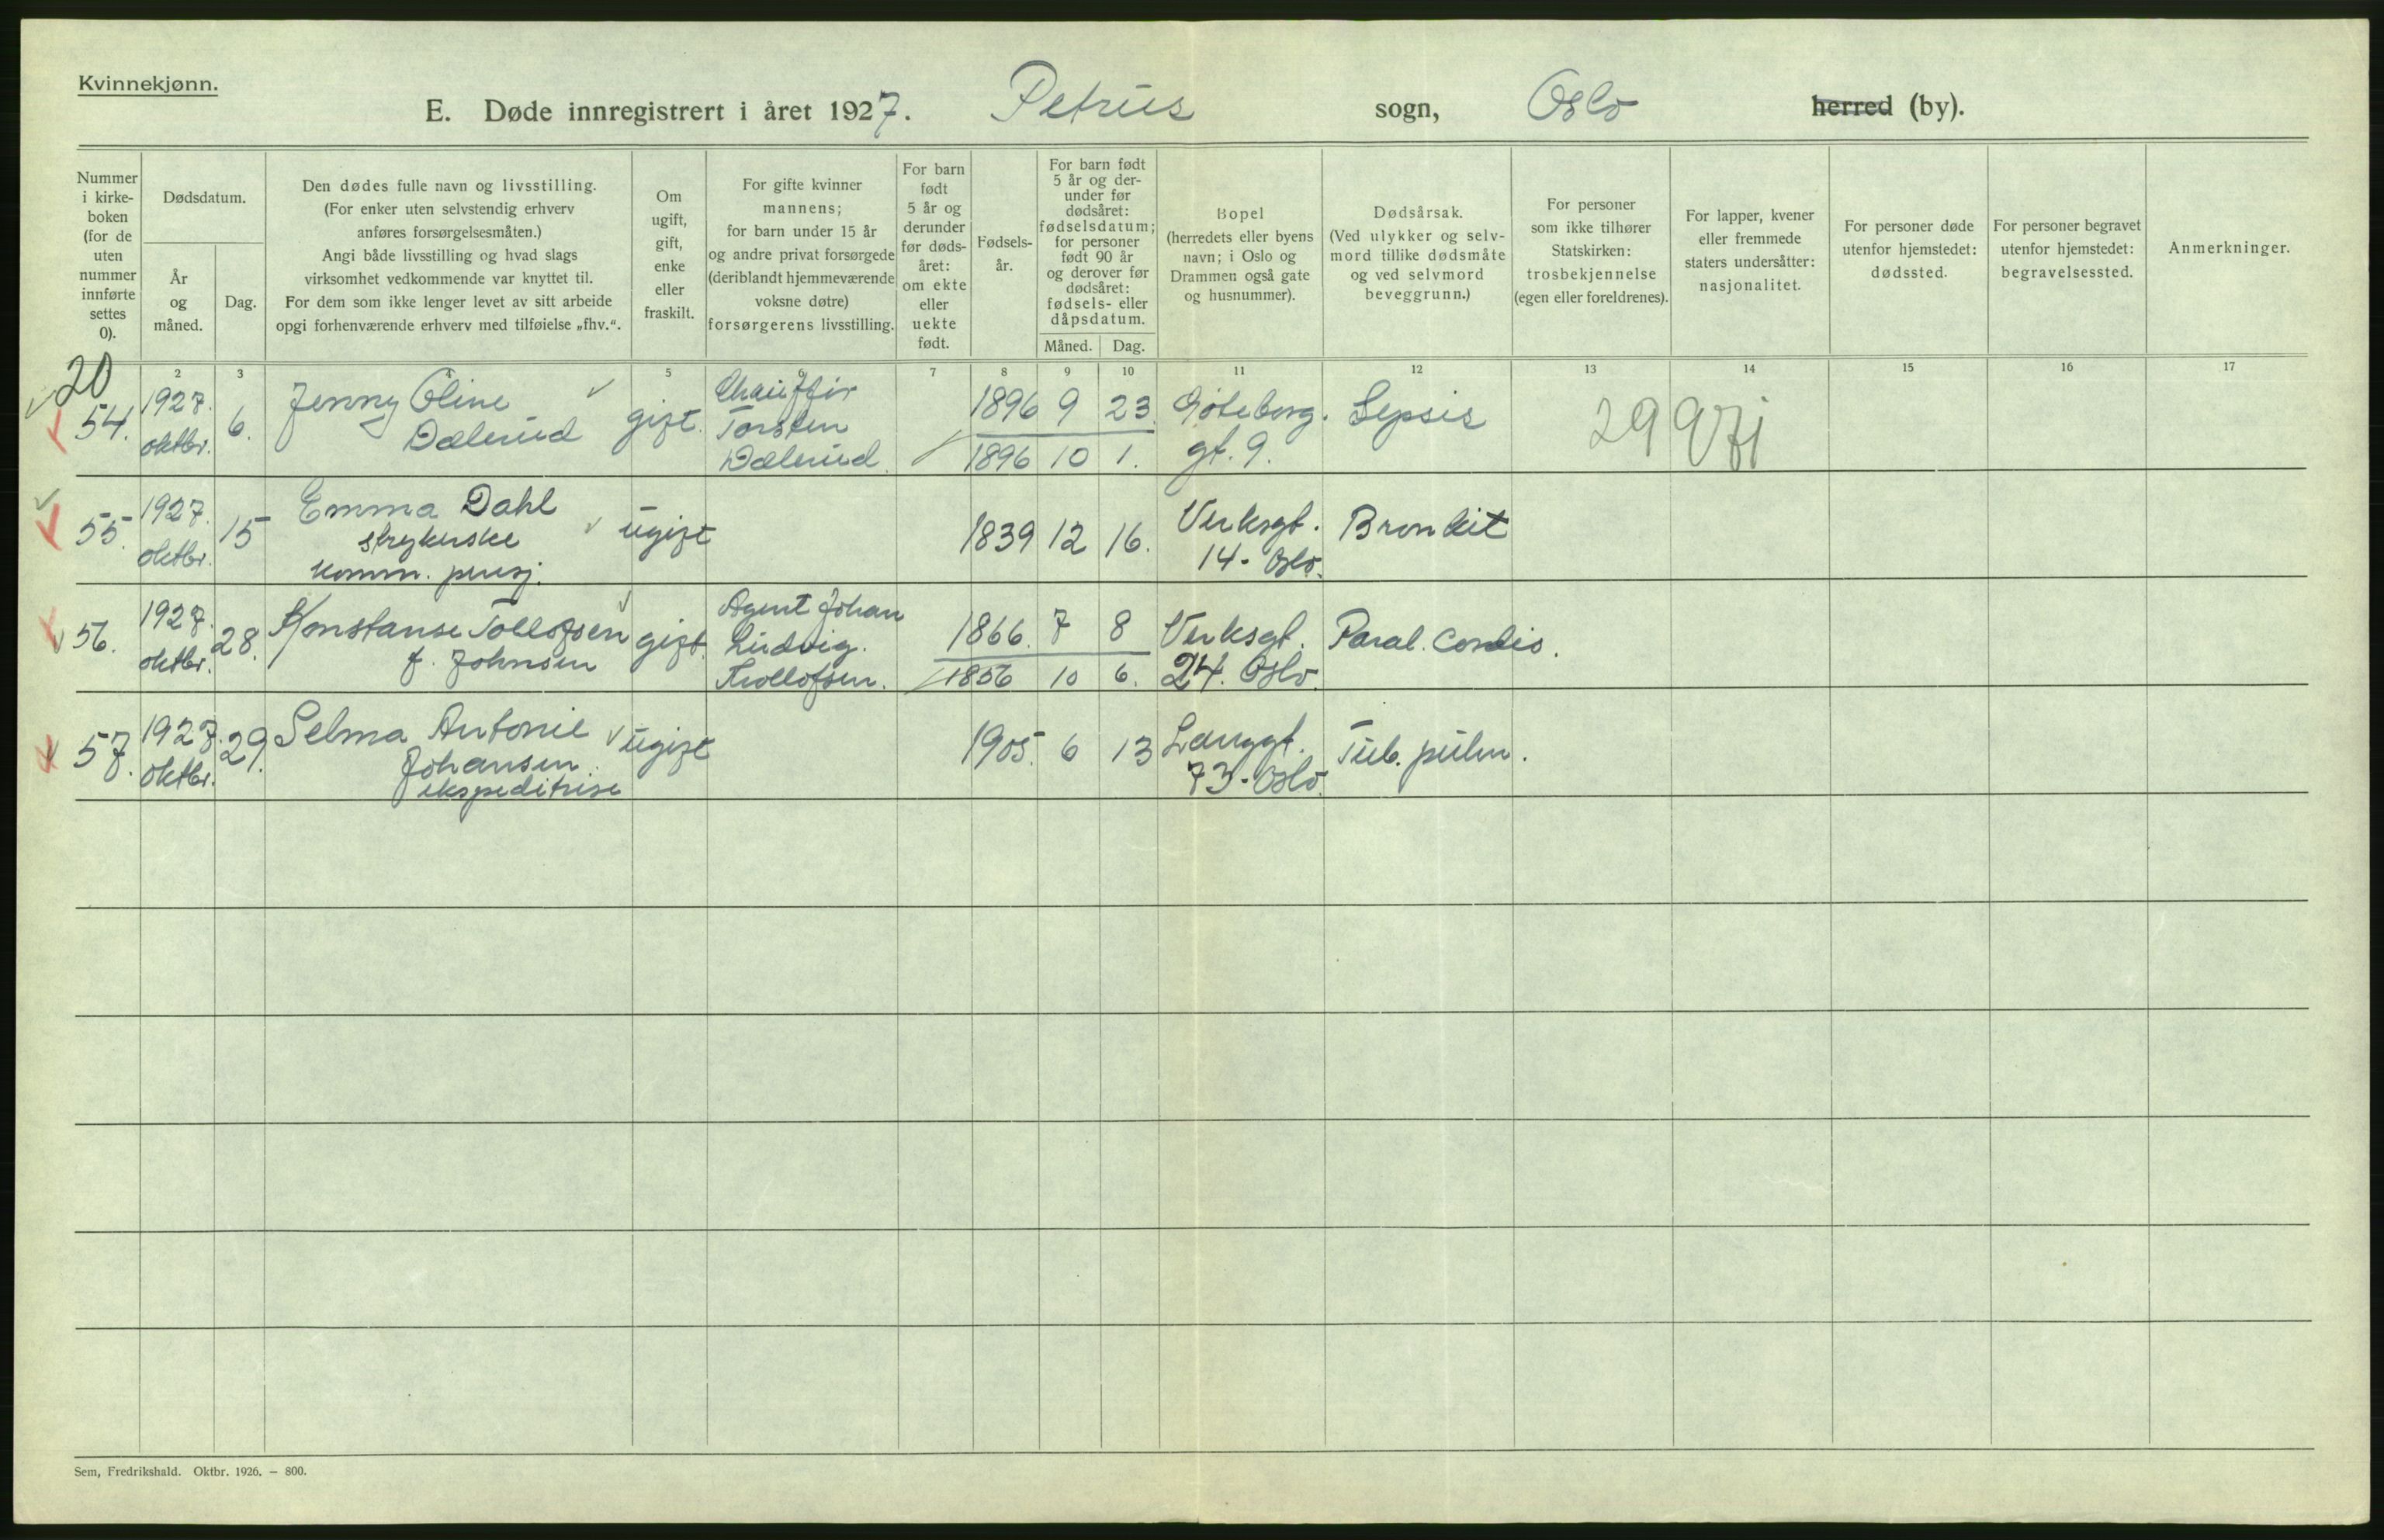 Kvinnekjønn.
E. Døde innregistrert i året 1927. Petrus sogn, Oslo herred (by).
Nummer i kirke-boken (for de uten nummer innførte settes 0).
Dødsdatum.
År og måned.
Dag.
Den dødes fulle navn og livsstilling.
(For enker uten selvstendig erhverv
anføres forsørgelsesmåten.)
Angi både livsstilling og hvad slags
virksomhet vedkommende var knyttet til.
For dem som ikke lenger levet av sitt arbeide
opgi forhenværende erhverv med tilføielse „fhv.“.
Om ugift, gift, enke eller fraskilt.
For gifte kvinner
mannens;
for barn under 15 år
og andre privat forsørgede
(deriblandt hjemmeværende
voksne døtre)
forsørgerens livsstilling.
For barn født 5 år og derunder før døds-året: om ekte eller uekte født.
Fødsels-år.
For barn født
5 år og der-
under før
dødsåret:
fødselsdatum;
for personer
født 90 år
og derover før
dødsåret:
fødsels- eller
dåpsdatum.
Måned. Dag.
Bopel
(herredets eller byens
navn; i Oslo og
Drammen også gate
og husnummer).
Dødsårsak.
(Ved ulykker og selv-
mord tillike dødsmåte
og ved selvmord
beveggrunn.)
For personer
som ikke tilhører
Statskirken:
trosbekjennelse
(egen eller foreldrenes).
For lapper, kvener
eller fremmede
staters undersåtter:
nasjonalitet.
For personer døde
utenfor hjemstedet:
dødssted.
For personer begravet
utenfor hjemstedet:
begravelsessted.
Anmerkninger.
2 3 5 7 8 9 10 11 12 13 14 15 16 17
20
54. 1927. oktbr. 6. Jenny Oline
Dælerud
gift.
Chauffør
Torsten
Dælerud.
1896 9 23.
1896 10 1.
Göteborg.
gt. 9.
Sepsis
29
55. 1927. oktbr. 15 Emma Dahl
strykerske
komm. pensj.
ugift
1839 12 16.
Verksgt.
14 - Oslo.
Bronkit
56. 1927. oktbr. 28. Konstanse Tollofsen
f. Johnsen
gift.
Agent Johan
Ludvig.
Trollofsen.
1866. 7 8
1856 10 6.
Verksgt.
24. Oslo.
Paral. cordis.
57. 1927. oktbr. 29. Selma Antonie
Johansen
ekspeditrise
ugift
1905. 6 13
Langgt.
73 - Oslo.
Tub. pulm.
Sem, Fredrikshald. Oktbr. 1926. — 800.